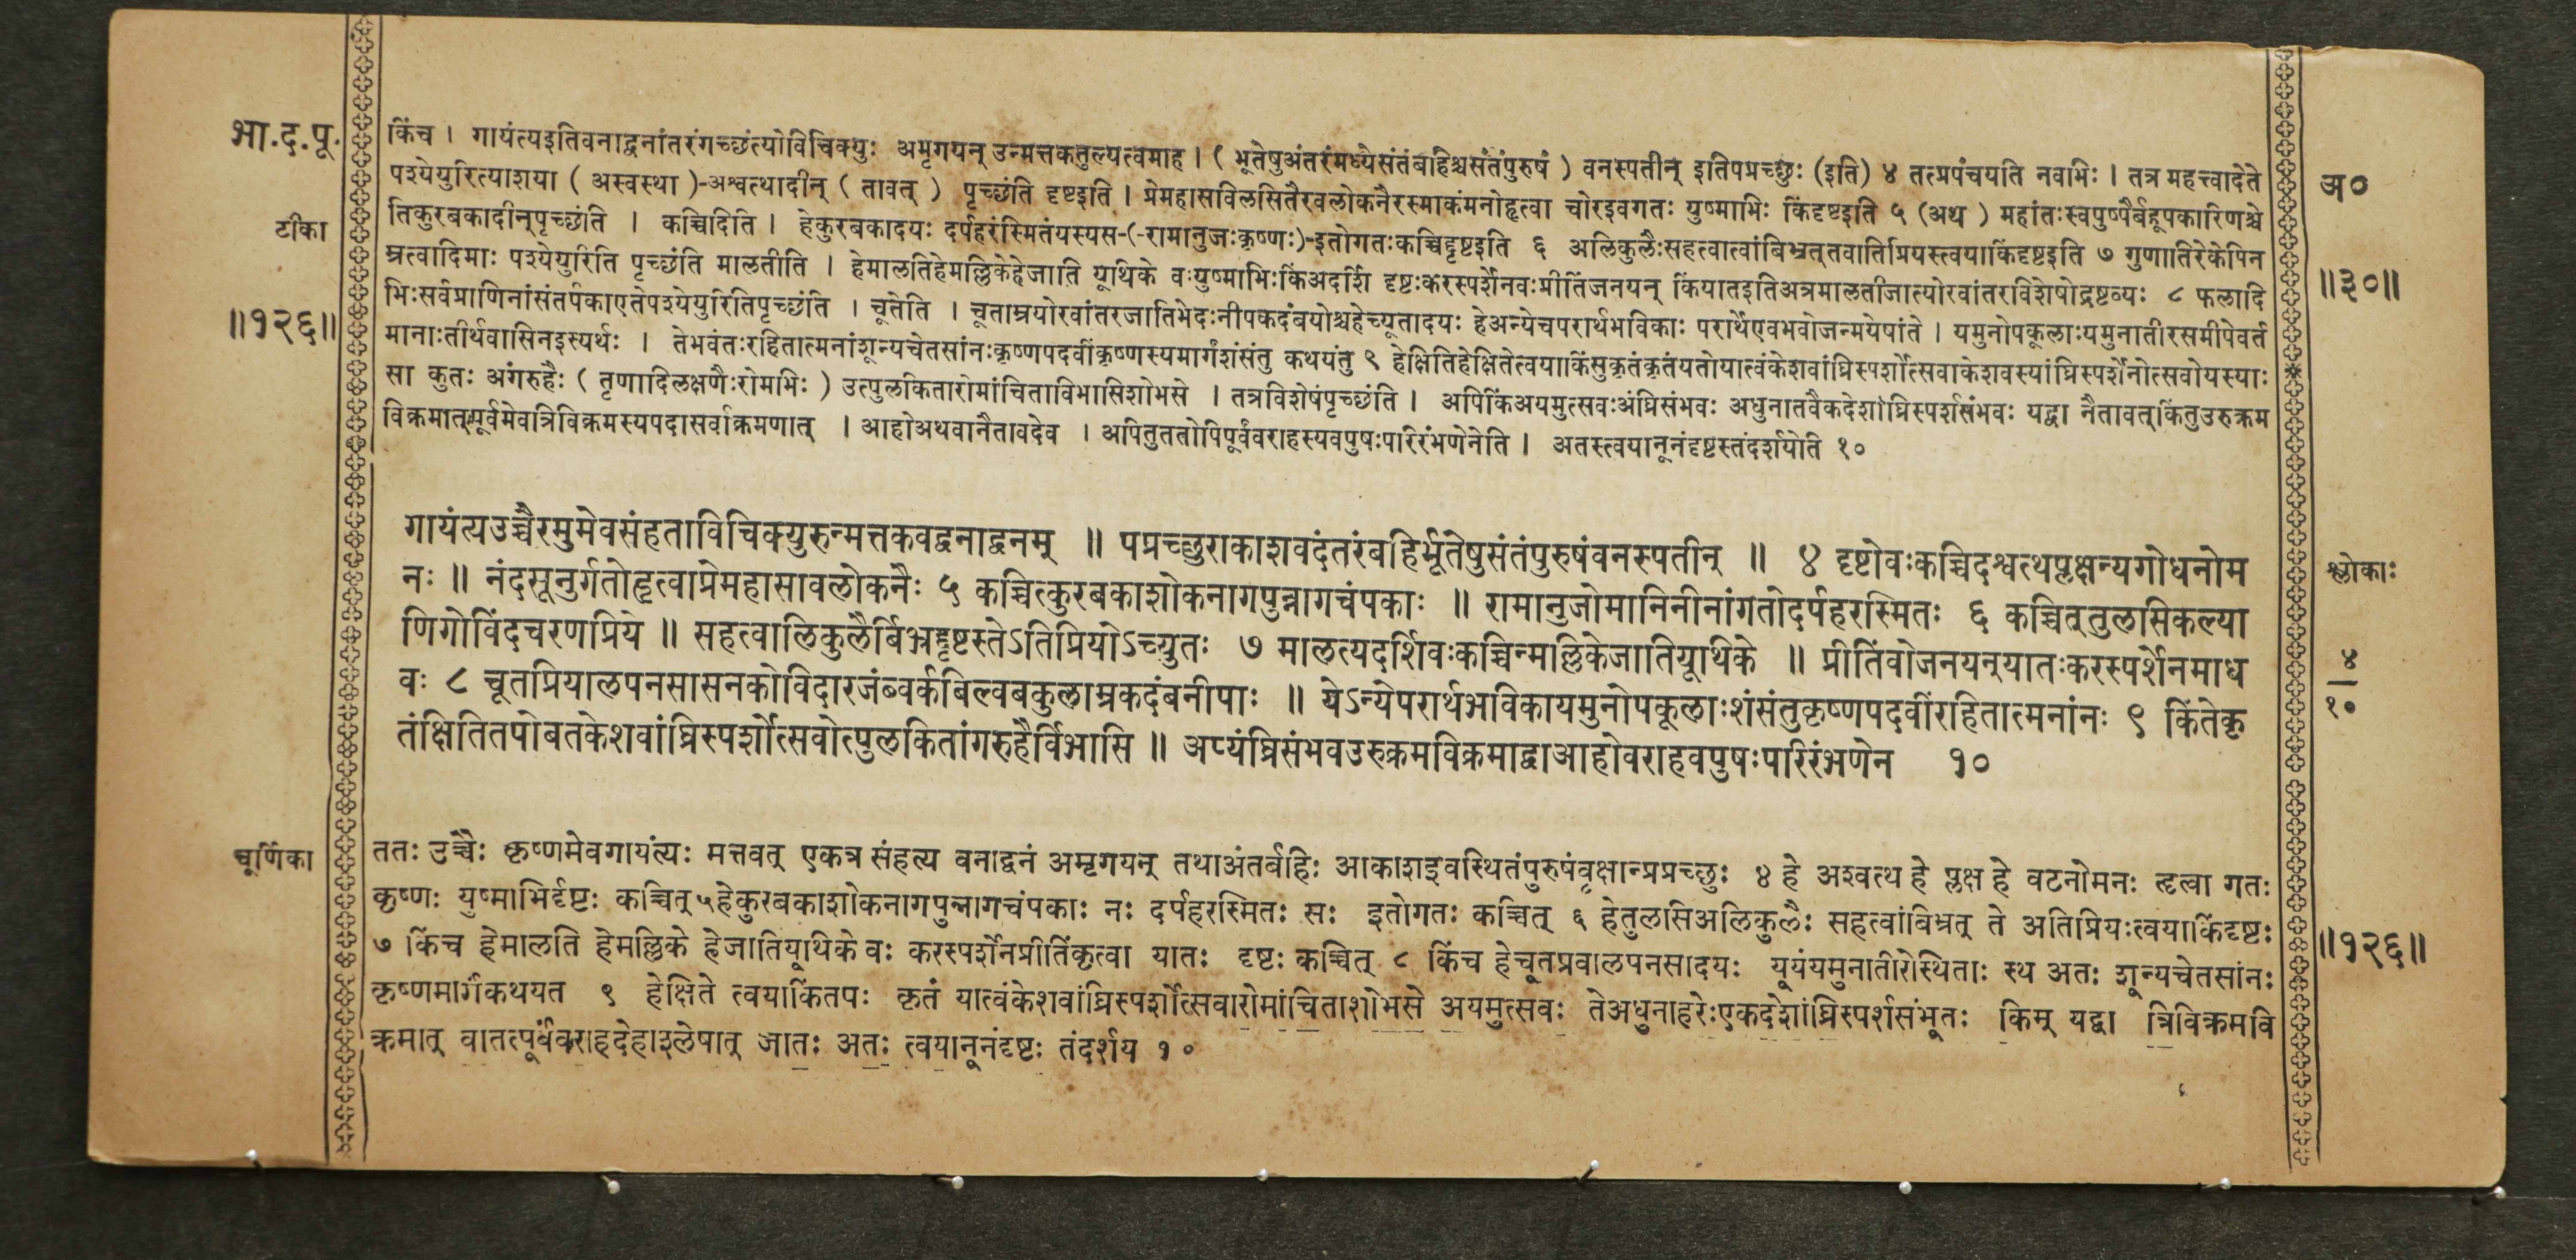 भा.द.पू.
टीका
॥१२६॥
किंच । गायंत्यइतिवनाद्वनांतरंगच्छंत्योविचिक्युः अमृगयन् उन्मत्तकतुल्यत्वमाह । ( भूतेषुअंतरंमध्येसंतंबहिश्चसंतंपुरुषं ) वनस्पतीन् इतिपप्रच्छुः (इति) ४ तत्प्रपंचयति नवभिः । तत्र महत्त्वादेते
पश्येयुरित्याशया ( अस्वस्था )-अश्वत्थादीन् ( तावत् ) पृच्छंति दृष्टइति । प्रेमहासविलसितैरवलोकनैरस्माकंमनोहृत्वा चोरइवगतः युष्माभिः किंदृष्टइति ५ (अथ ) महांतःस्वपुष्पैर्बहूपकारिणश्चे
तिकुरबकादीन्पृच्छंति । कच्चिदिति । हेकुरबकादयः दर्पहरंस्मितंयस्यस-(-रामानुजःकृष्णः)-इतोगतःकच्चिद्दृष्टइति ६ अलिकुलैःसहत्वात्वांबिभ्रत्तवातिप्रियस्त्वयाकिंदृष्टइति ७ गुणातिरेकेपिन
म्रत्वादिमाः पश्येयुरिति पृच्छंति मालतीति । हेमालतिहेमल्लिकेहेजाति यूथिके वःयुष्माभिःकिंअदर्शि दृष्टःकरस्पर्शेनवःप्रीतिंजनयन् किंयातइतिअत्रमालतीजात्योरवांतरविशेषोद्रष्टव्यः ८ फलादि
भिःसर्वप्राणिनांसंतर्पकाएतेपश्येयुरितिपृच्छंति । चूतेति । चूताम्रयोरवांतरजातिभेदःनीपकदंबयोश्चहेच्यूतादयः हेअन्येचपरार्थभविकाः परार्थेएवभवोजन्मयेषांते । यमुनोपकूलाःयमुनातीरसमीपेवर्त
मानाःतीर्थवासिनइस्यर्थः । तेभवंतःरहितात्मनांशून्यचेतसांनःकृष्णपदवींकृष्णस्यमार्गंशंसंतु कथयंतु ९ हेक्षितिहेक्षितेत्वयाकिंसुकृतंकृतंयतोयात्वंकेशवांघ्रिस्पर्शोत्सवाकेशवस्यांघ्रिस्पर्शेनोत्सवोयस्याः
सा कुतः अंगरुहैः ( तृणादिलक्षणैःरोमभिः ) उत्पुलकितारोमांचिताविभासिशोभसे । तत्रविशेषंपृच्छंति । अपिकिंअयमुत्सवःअंघ्रिसंभवः अधुनातवैकदेशांघ्रिस्पर्शसंभवः यद्वा नैतावत्किंतुउरुक्रम
विक्रमात्पूर्वमेवत्रिविक्रमस्यपदासर्वाक्रमणात् । आहोअथवानैतावदेव । अपितुततोपिपूर्वंवराहस्यवपुषःपारिरंभणेनेति । अतस्त्वयानूनंदृष्टस्तंदर्शयोति १०
अ०
॥३०॥
गायंत्यउच्चैरमुमेवसंहताविचिक्युरुन्मत्तकवद्वनाद्वनम् ॥ पप्रच्छुराकाशवदंतरंबहिर्भूतेषुसंतंपुरुषंवनस्पतीन् ॥ ४ दृष्टोवःकच्चिदश्वत्थप्लक्षन्यगोधनोम
नः ॥ नंदसूनुर्गतोहृत्वाप्रेमहासावलोकनैः ५ कच्चित्कुरबकाशोकनागपुन्नागचंपकाः ॥ रामानुजोमानिनीनांगतोदर्पहरस्मितः ६ कच्चित्तुलासिकल्या
णिगोविंदचरणप्रिये ॥ सहत्वालिकुलैर्बिभ्रद्दृष्टस्तेऽतिप्रियोऽच्युतः ७ मालत्यदर्शिवःकच्चिन्मल्लिकेजातियूथिके ॥ प्रीतिंवोजनयन्यातःकरस्पर्शेनमाध
वः ८ चूतप्रियालपनसासनकोविदारजंब्वर्कबिल्वबकुलाम्रकदंबनीपाः ॥ येऽन्येपरार्थभविकायमुनोपकूलाःशंसंतुकृष्णपदवींराहितात्मनांनः ९ किंतेकृ
तंक्षितितपोबतकेशवांघ्रिस्पर्शोत्सवोत्पुलकितांगरुहैर्विभासि ॥ अप्यंघ्रिसंभवउरुक्रमविक्रमाद्वाआहोवराहवपुषःपारिरंभणेन १०
श्लोकाः
४
१०
चूर्णिका
ततः उच्चैः कृष्णमेवगायंत्यः मत्तवत् एकत्र संहत्य वनाद्वनं अमृगयन् तथाअंतर्बहिः आकाशइवस्थितंपुरुषंवृक्षान्प्रप्रच्छुः ४ हे अश्वत्थ हे प्लक्ष हे वटनोमनः हृत्वा गतः
कृष्णः युष्माभिर्दृष्टः कच्चित् ५हेकुरबकाशोकनागपुन्नागचंपकाः नः दर्पहरस्मितः सः इतोगतः कच्चित् ६ हेतुलसिअलिकुलैः सहत्वांविभ्रत् ते अतिप्रियःत्वयाकिंदृष्टः
७ किंच हेमालति हेमल्लिके हेजातियूथिके वः करस्पर्शेनप्रीतिंकृत्वा यातः दृष्टः कच्चित् ८ किंच हेचूतप्रवालपनसादयः यूयंयमुनातीरोस्थिताः स्थ अतः शून्यचेतसांनः
कृष्णमार्गंकथयत ९ हेक्षिते त्वयाकिंतपः कृतं यात्वंकेशवांघ्रिस्पर्शोत्सवारोमांचिताशोभसे अयमुत्सवः तेअधुनाहरेःएकदेशांघ्रिस्पर्शसंभूतः किम् यद्वा त्रिविक्रमवि
क्रमात् वातत्पूर्वंवराहदेहाश्लेषात् जातः अतः त्वयानूनंदृष्टः तंदर्शय १०
॥१२६॥